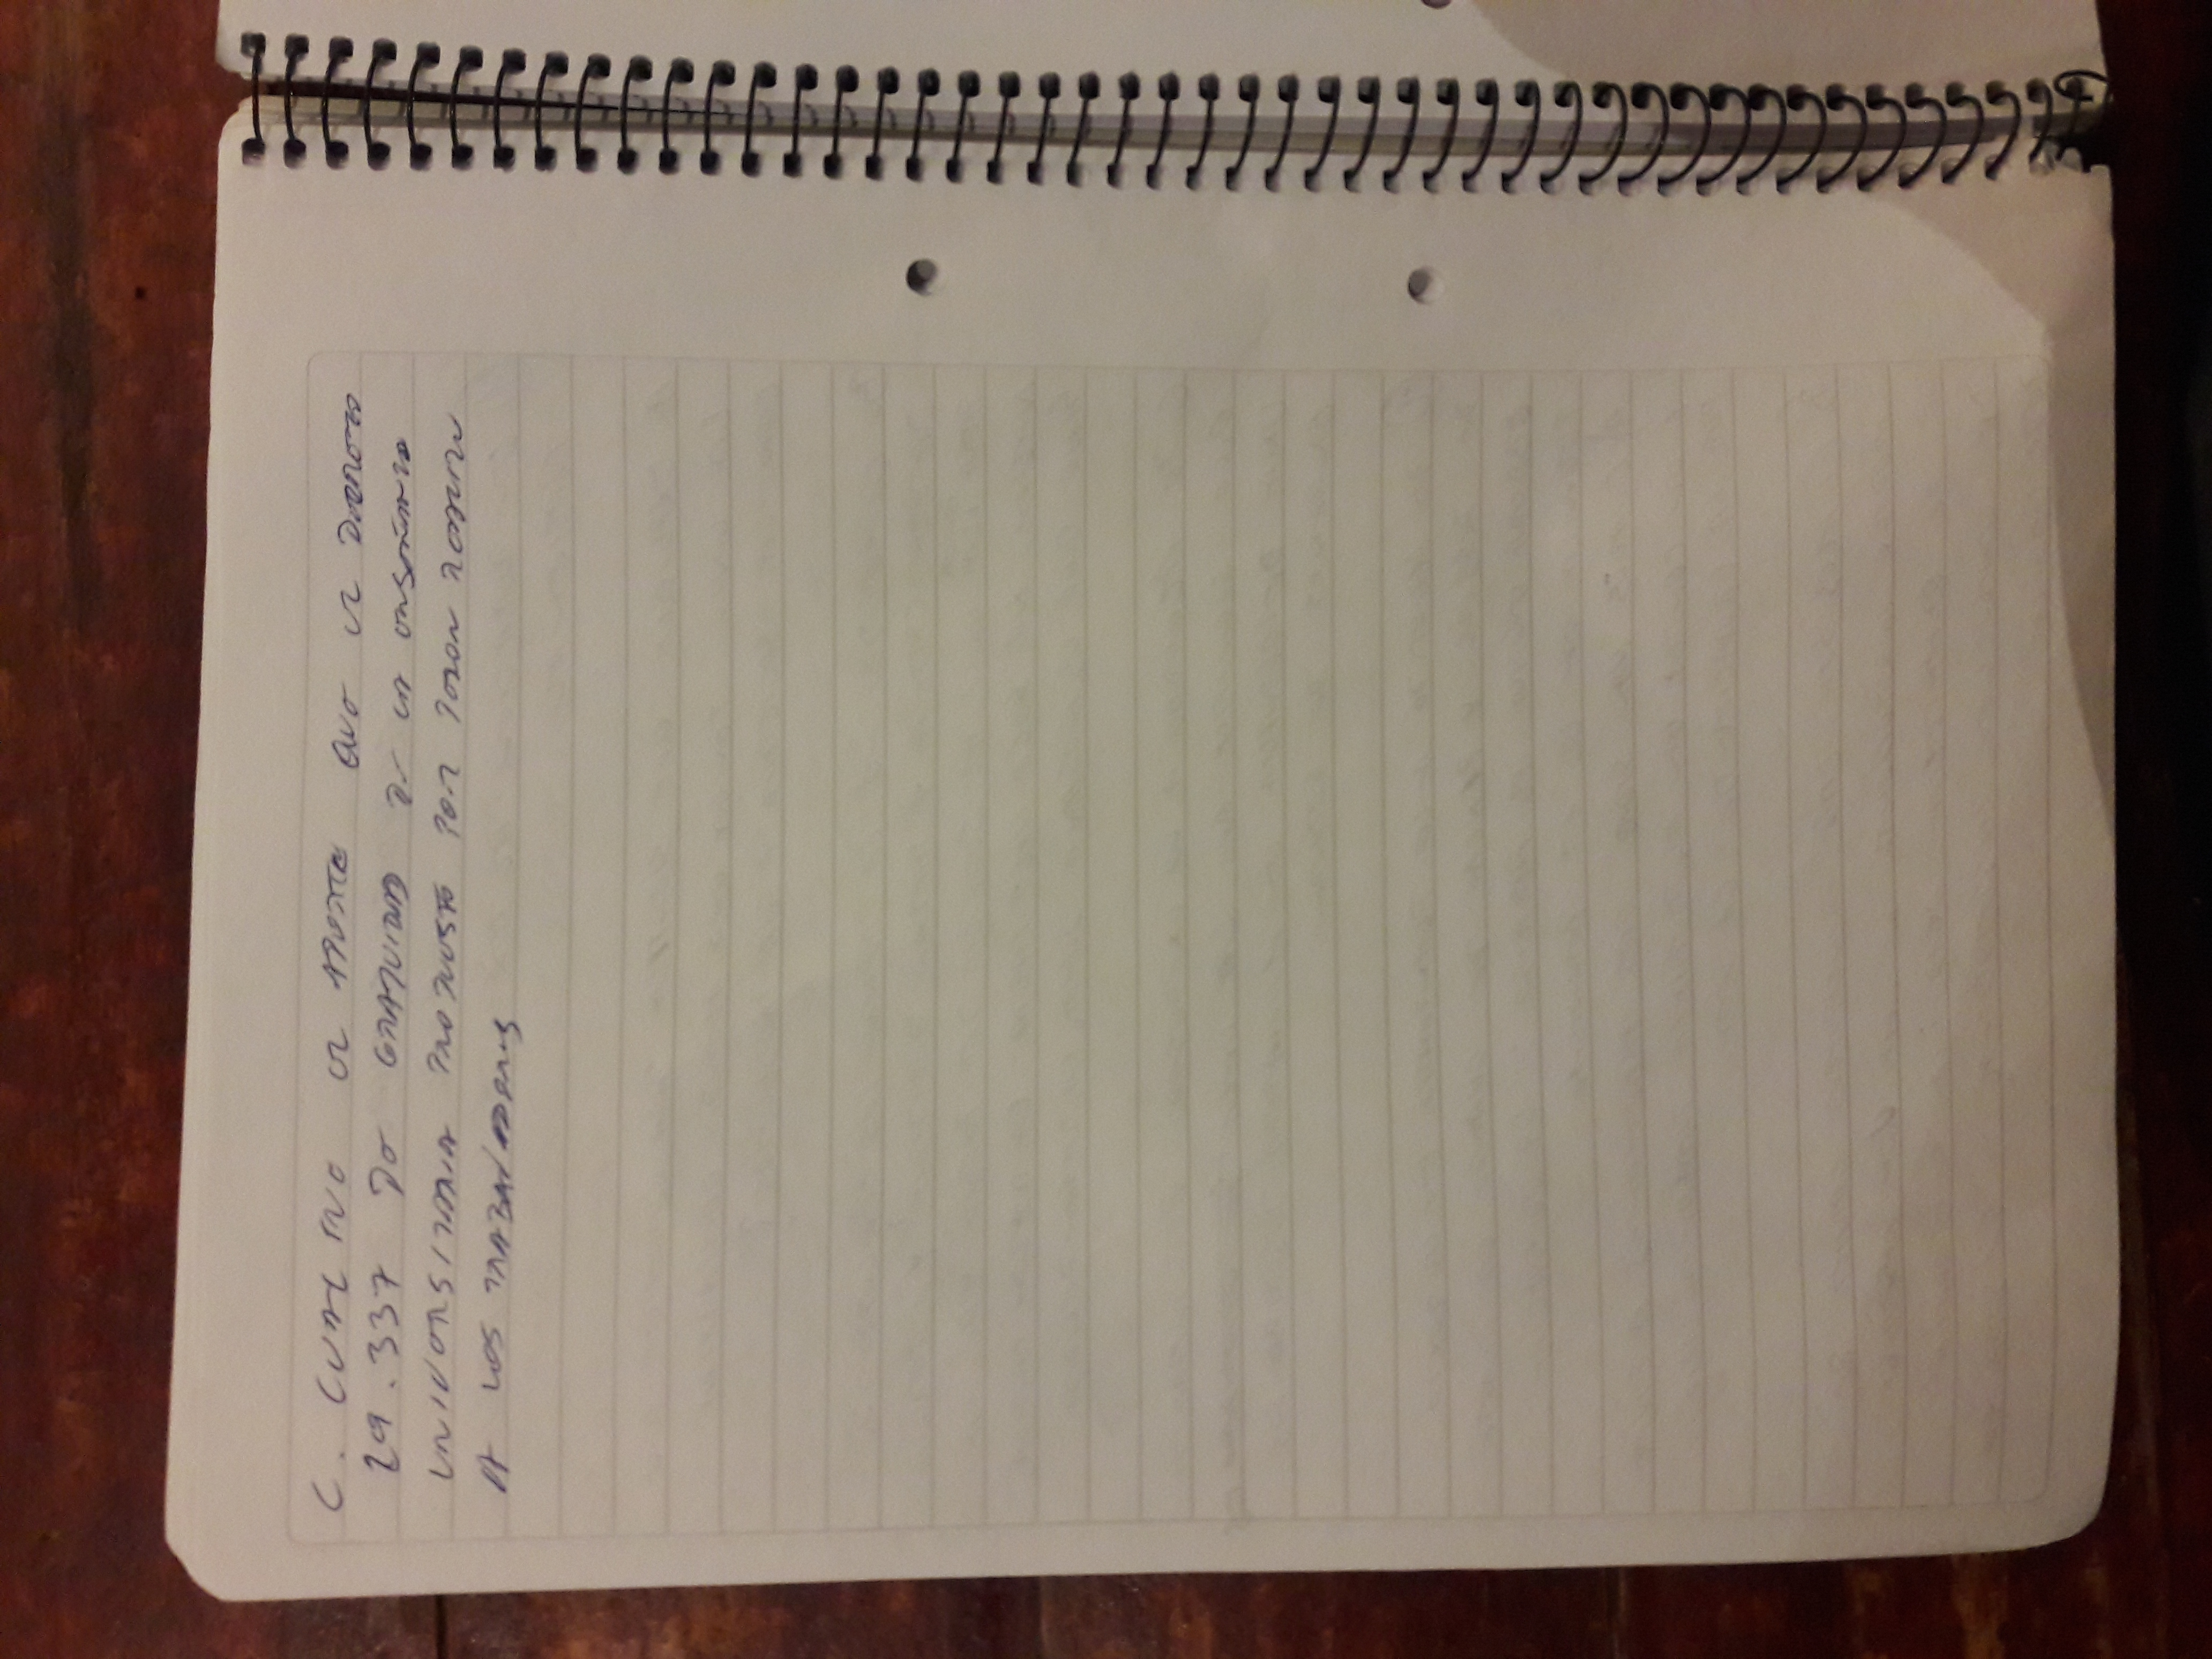 C. CUAL FUE EL APORTE QUE EL DECRETO
29.337 DE GRATUIDAD DE LA ENSEÑANZA
UNIVERSITARIA PROPUESTO POR PERON
A LOS TRABAJADORES